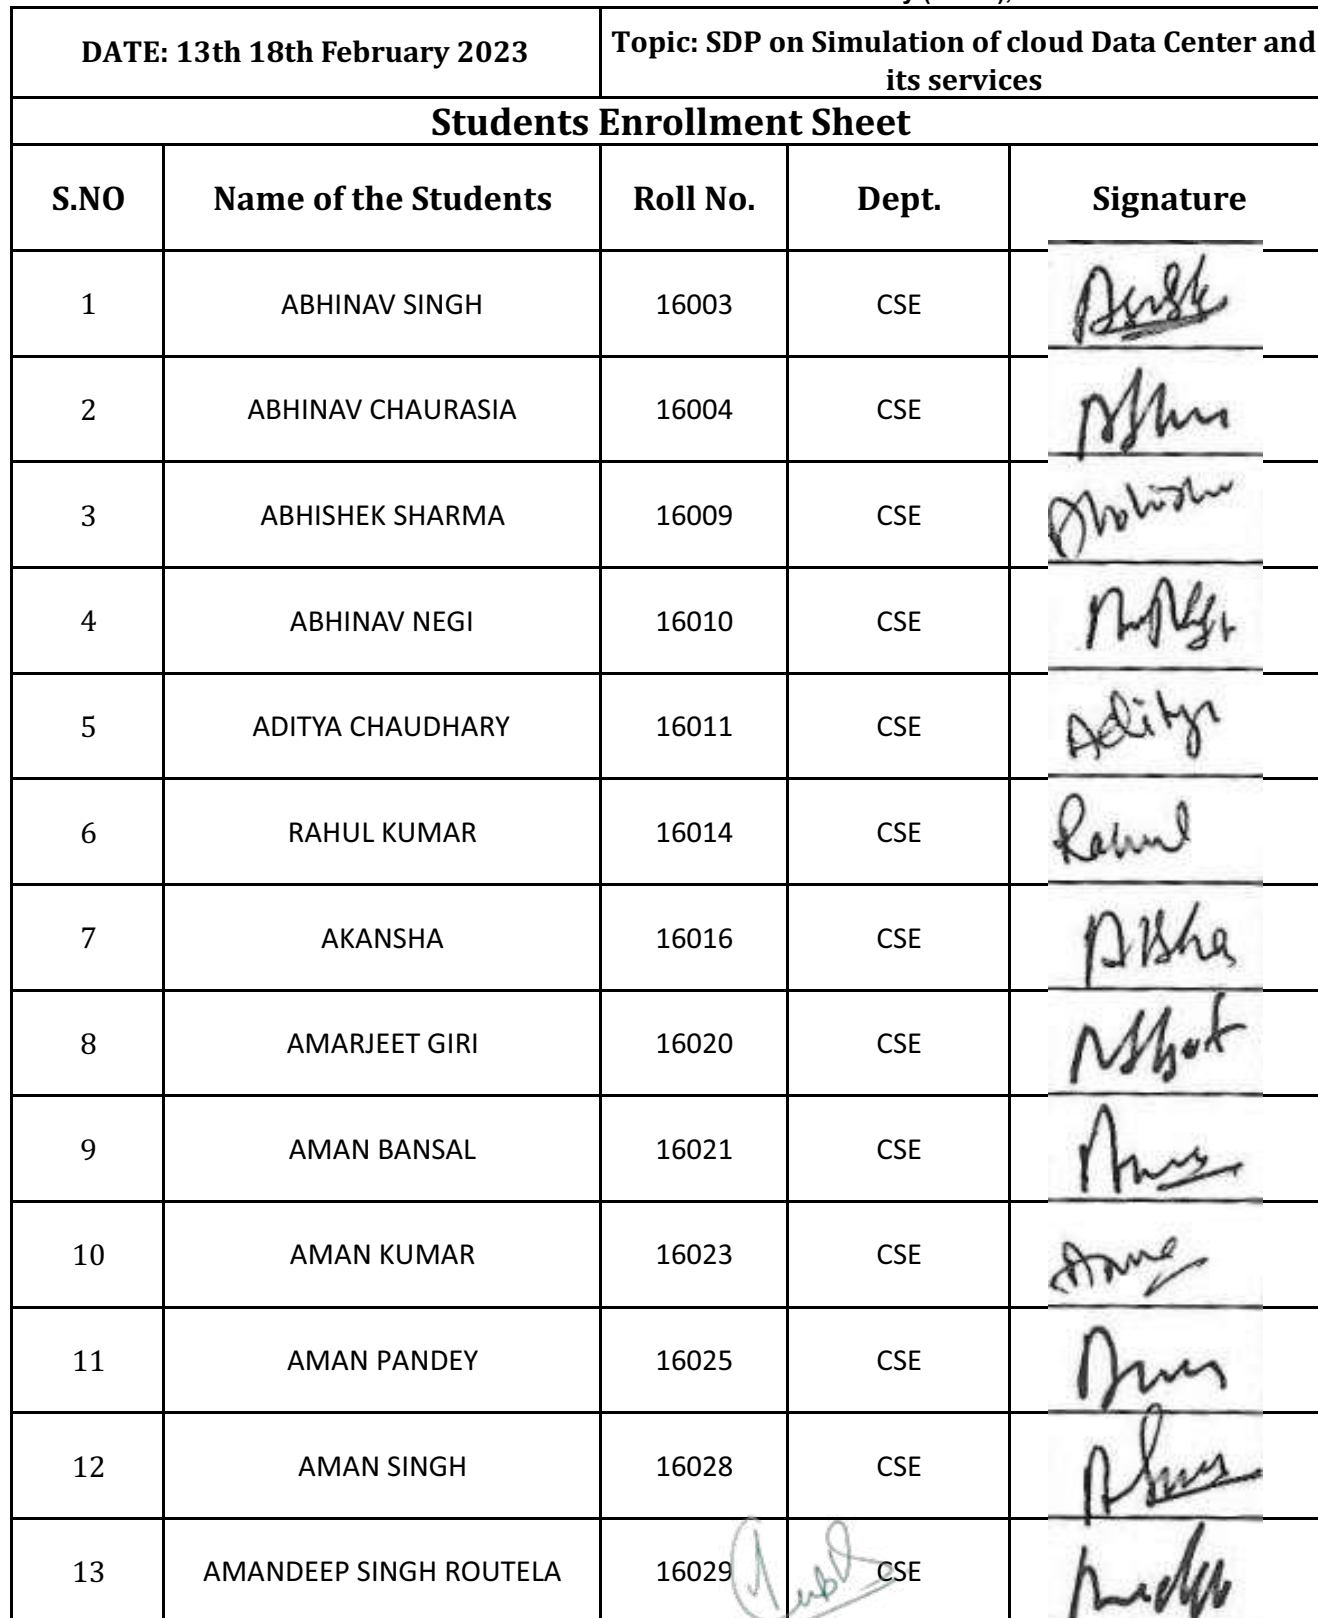 DATE: 13th 18th February 2023
Topic: SDP on Simulation of cloud Data Center and
its services
Students Enrollment Sheet
S.NO Name of the Students Roll No. Dept. Signature
1 ABHINAV SINGH 16003 CSE
2 ABHINAV CHAURASIA 16004 CSE
3 ABHISHEK SHARMA 16009 CSE
4 ABHINAV NEGI 16010 CSE
5 ADITYA CHAUDHARY 16011 CSE Aditya
6 RAHUL KUMAR 16014 CSE Rahul
7 AKANSHA 16016 CSE
8 AMARJEET GIRI 16020 CSE
9 AMAN BANSAL 16021 CSE
10 AMAN KUMAR 16023 CSE
11 AMAN PANDEY 16025 CSE
12 AMAN SINGH 16028 CSE
13 AMANDEEP SINGH ROUTELA 16029 CSE